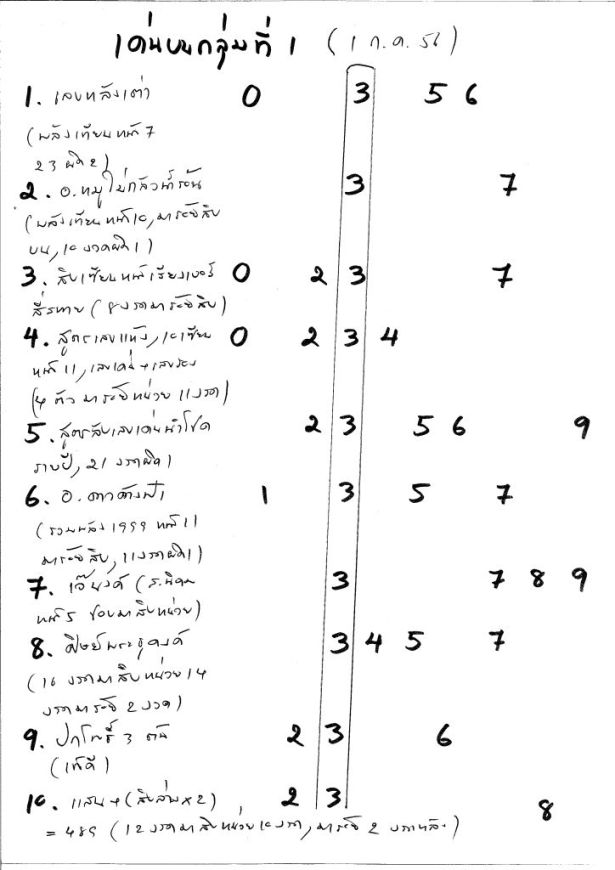 เด่นบนกลุ่มที่ 1 (1 ก.ค. 56)
1. เลขหลังเต่า 0 3 5 6
(พลังเทียนหน้า 7
23 ผิด 2)
2. อ.หมูไม่กลัวน้ำร้อน 3 7
(พลังเทียนหน้า 10, มาร้อยสิบ
บน, 10 งวดผิด 1)
3. สิบเซียนหน้าเรียงเบอร์ 0 2 3 7
(8 งวดมาร้อยสิบ)
4. สูตรเลขแห้ง, 10 เซียน 0 2 3 4
หน้า 11, เลขเด่น + เลขรอง
(4 ตัว มาร้อยหน่วย 11 งวด)
5. สูตรลับเลขเด่นนำโชค 2 3 5 6 9
รายปี, 21 งวดผิด 1
6. อ.ดาวค้างฟ้า 1 3 5 7
(รวมพลัง 1999 หน้า 11
มาร้อยสิบ, 11 งวดผิด 1)
7. เจ๊ 3 7 8 9
หน้า 5 ชอบมาสิบหน่วย)
8. ศิษย์พระธุดงค์ 3 4 5 7
(16 งวดมาสิบหน่วย 14
งวดมาร้อย 2 งวด)
9. 3 2 3 6
10. แสน + (สิบล่าง x 2) 2 3 8
= 489 (12 งวดมาสิบหน่วย 10 งวด, มาร้อย 2 งวดหลัง)